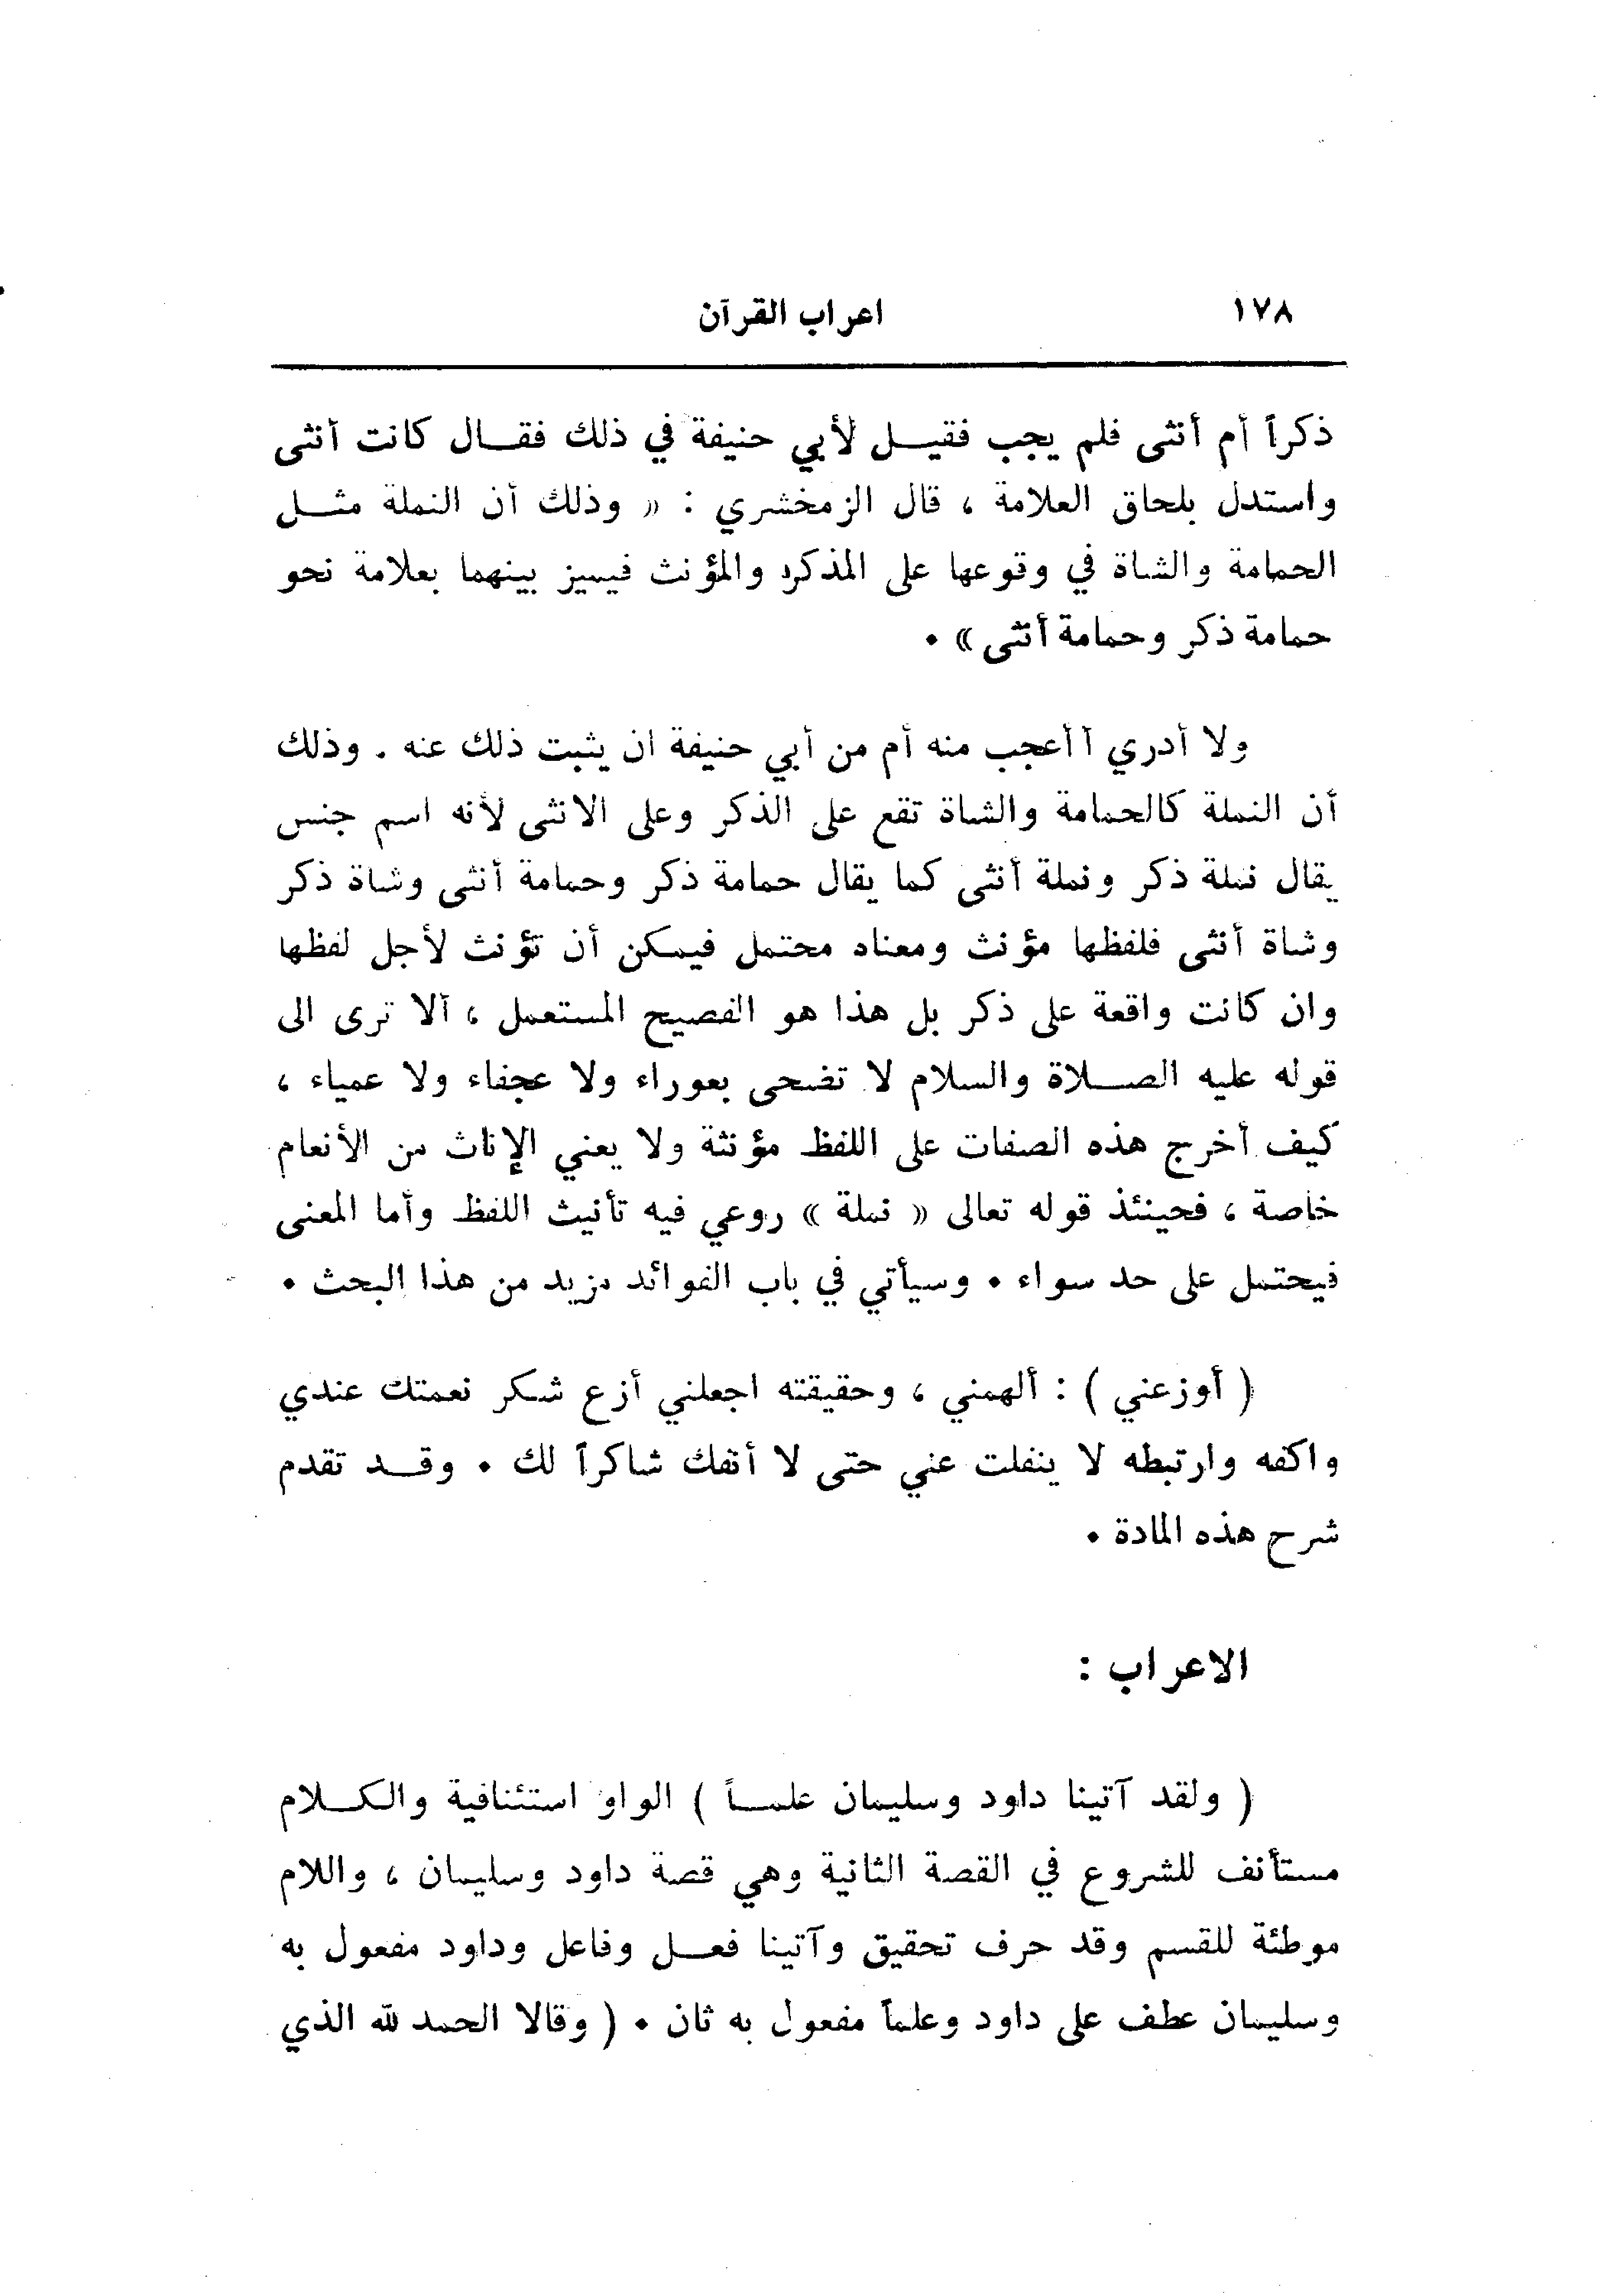 ١٧٨ اعراب القرآن
ذكراً أم أنثى فلم يجب فقيل لأبي حنيفة في ذلك فقال كانت أنثى
واستدل بلحاق العلامة ، قال الزمخشري : « وذلك أن النملة مثل
الحمامة والشاة في وقوعها على المذكر والمؤنث فيميز بينهما بعلامة نحو
حمامة ذكر وحمامة أنثى » .
ولا أدري أأعجب منه أم من أبي حنيفة ان يثبت ذلك عنه . وذلك
أن النملة كالحمامة والشاة تقع على الذكر وعلى الانثى لأنه اسم جنس
يقال نملة ذكر ونملة أنثى كما يقال حمامة ذكر وحمامة أنثى وشاة ذكر
وشاة أنثى فلفظها مؤنث ومعناه محتمل فيمكن أن تؤنث لأجل لفظها
وان كانت واقعة على ذكر بل هذا هو الفصيح المستعمل ، ألا ترى الى
قوله عليه الصلاة والسلام لا تضحى بعوراء ولا عجفاء ولا عمياء ،
كيف أخرج هذه الصفات على اللفظ مؤنثة ولا يعني الإناث من الأنعام
خاصة ، فحينئذ قوله تعالى « نملة » روعي فيه تأنيث اللفظ وأما المعنى
فيحتمل على حد سواء . وسيأتي في باب الفوائد مزيد من هذا البحث .
( أوزعني ) : ألهمني ، وحقيقته اجعلني أزع شكر نعمتك عندي
واكفه وارتبطه لا ينفلت عني حتى لا أنفك شاكراً لك . وقد تقدم
شرح هذه المادة .
الاعراب :
( ولقد آتينا داود وسليمان علماً ) الواو استئنافية والكلام
مستأنف للشروع في القصة الثانية وهي قصة داود وسليمان ، واللام
موطئة للقسم وقد حرف تحقيق وآتينا فعل وفاعل وداود مفعول به
وسليمان عطف على داود وعلماً مفعول به ثان . ( وقالا الحمد لله الذي